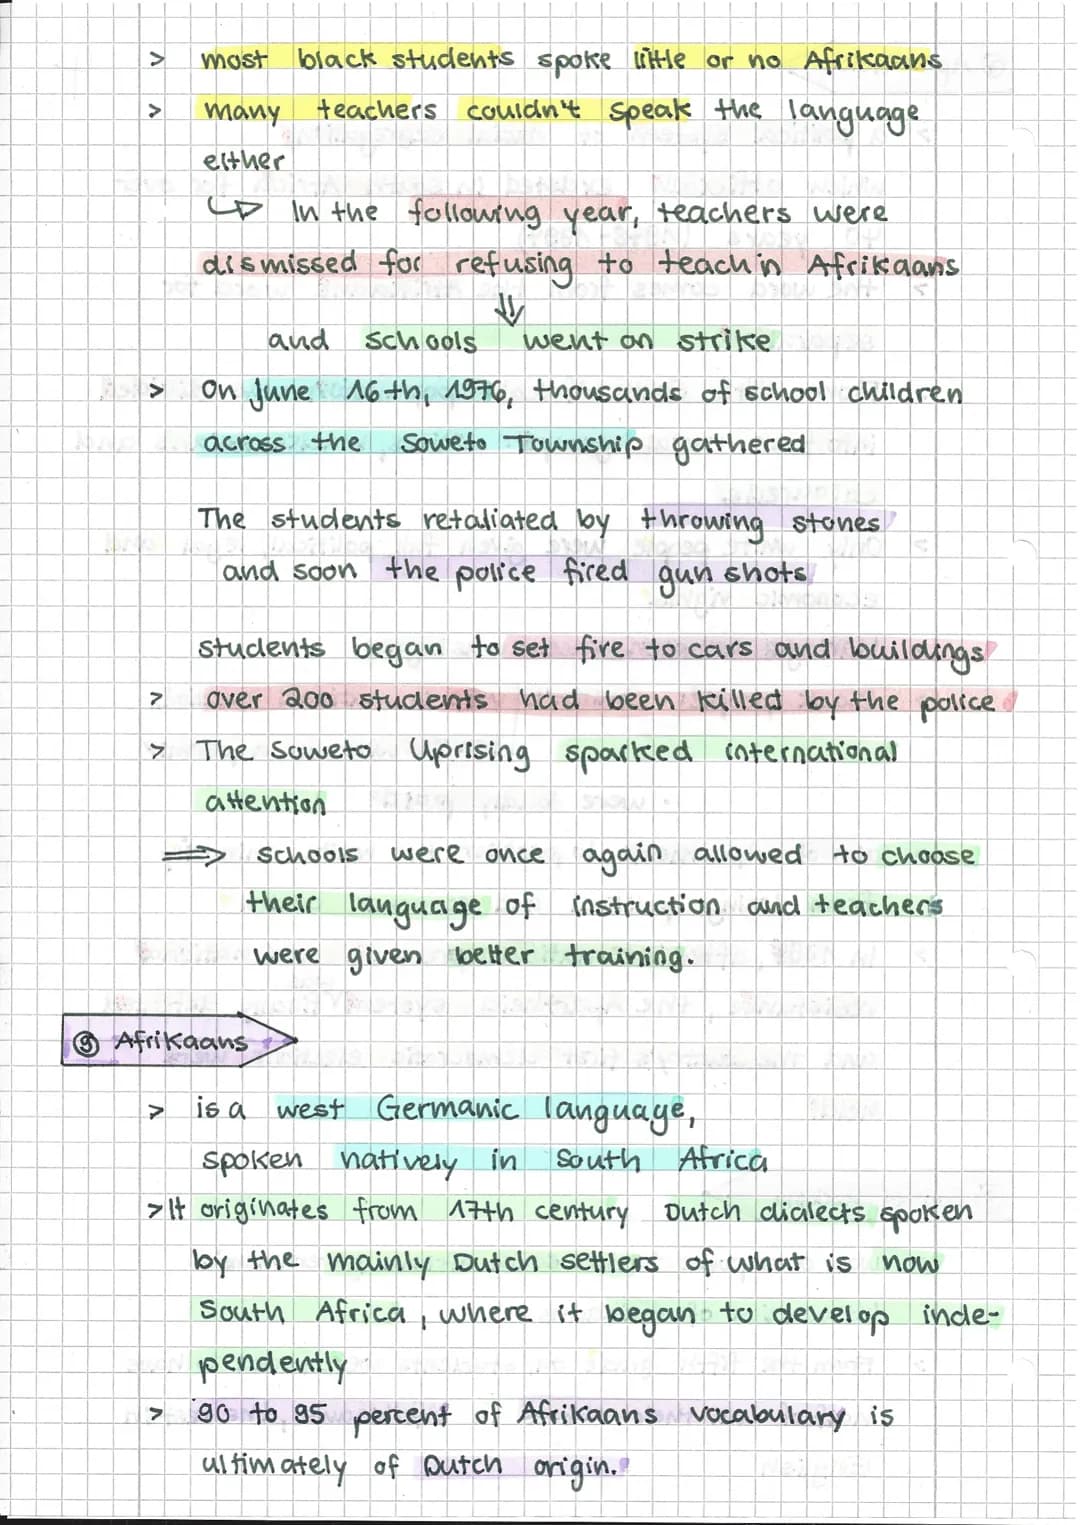 > most black students spoke little or no Afrikaans
> many teachers couldn't speak the language
either
↳ In the following year, teachers were
dismissed for refusing to teach in Afrikaans
⇓
and schools went on strike
> On June 16th, 1976, thousands of school children
across the Soweto Township gathered
The students retaliated by throwing stones
and soon the police fired gun shots
students began to set fire to cars and buildings
> over 200 students had been killed by the police
> The Soweto Uprising sparked international
attention
⇒ schools were once again allowed to choose
their language of instruction and teachers
were given better training.
⑨ Afrikaans
> is a west Germanic language,
spoken natively in South Africa
> It originates from 17th century Dutch dialects spoken
by the mainly Dutch settlers of what is now
South Africa, where it began to develop inde-
pendently
> 90 to 95 percent of Afrikaans vocabulary is
ultimately of Dutch origin.